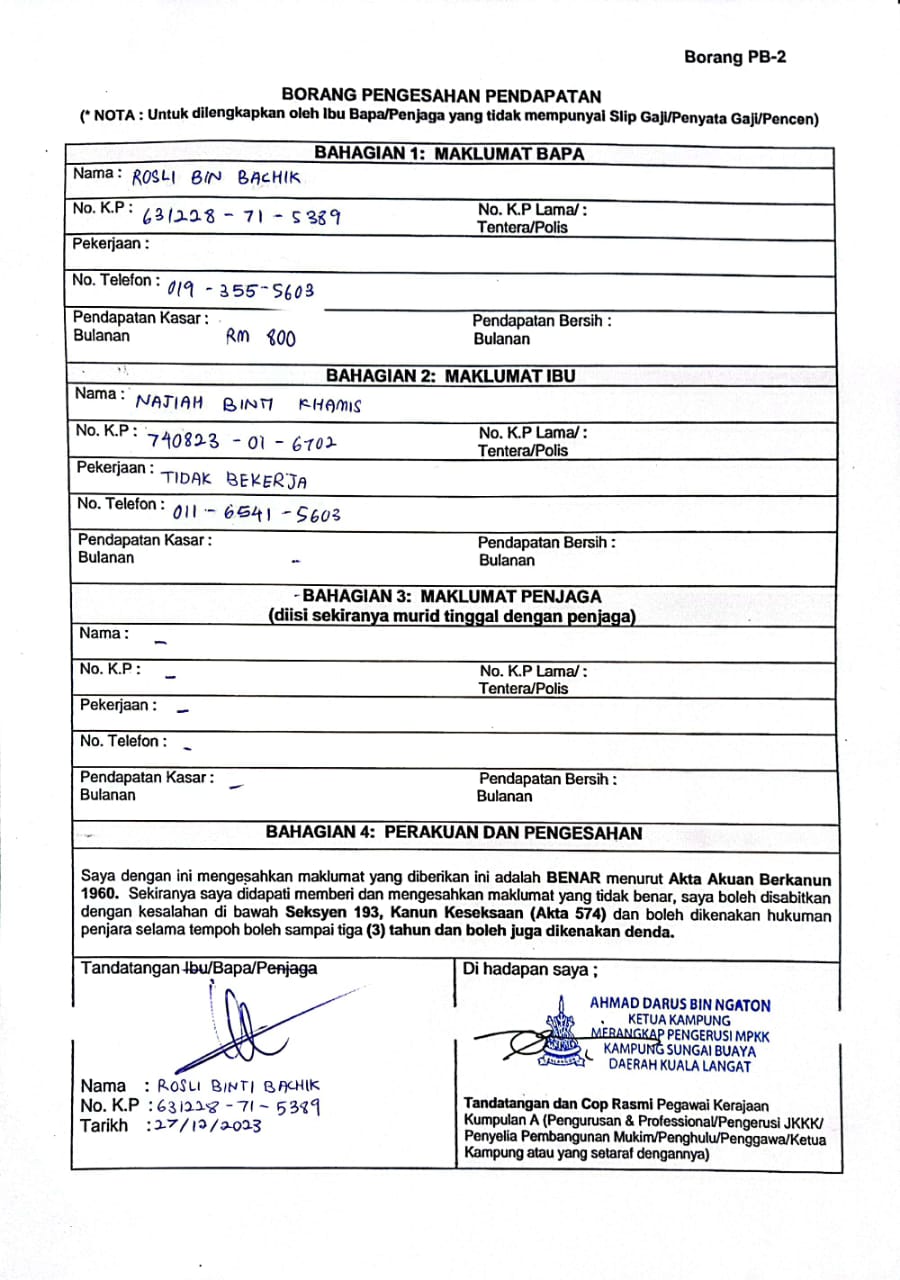 Borang PB-2
BORANG PENGESAHAN PENDAPATAN
(* NOTA : Untuk dilengkapkan oleh Ibu Bapa/Penjaga yang tidak mempunyai Slip Gaji/Penyata Gaji/Pencen)
BAHAGIAN 1: MAKLUMAT BAPA
Nama : ROSLI BIN BACHIK
No. K.P : 631228 - 71 - 5389 No. K.P Lama/ :
Tentera/Polis
Pekerjaan :
No. Telefon : 019 - 355-5603
Pendapatan Kasar : Pendapatan Bersih :
Bulanan RM 800 Bulanan
BAHAGIAN 2: MAKLUMAT IBU
Nama : NAJIAH BINTI KHAMIS
No. K.P : 740823 - 01 - 6702 No. K.P Lama/ :
Tentera/Polis
Pekerjaan : TIDAK BEKERJA
No. Telefon : 011 - 6541 - 5603
Pendapatan Kasar : Pendapatan Bersih :
Bulanan - Bulanan
- BAHAGIAN 3: MAKLUMAT PENJAGA
(diisi sekiranya murid tinggal dengan penjaga)
Nama : -
No. K.P : - No. K.P Lama/ :
Tentera/Polis
Pekerjaan : -
No. Telefon : -
Pendapatan Kasar : - Pendapatan Bersih :
Bulanan Bulanan
BAHAGIAN 4: PERAKUAN DAN PENGESAHAN
Saya dengan ini mengesahkan maklumat yang diberikan ini adalah BENAR menurut Akta Akuan Berkanun
1960. Sekiranya saya didapati memberi dan mengesahkan maklumat yang tidak benar, saya boleh disabitkan
dengan kesalahan di bawah Seksyen 193, Kanun Keseksaan (Akta 574) dan boleh dikenakan hukuman
penjara selama tempoh boleh sampai tiga (3) tahun dan boleh juga dikenakan denda.
Tandatangan Ibu/Bapa/Penjaga
Nama : ROSLI BINTI BACHIK
No. K.P : 631228 - 71 - 5389
Tarikh : 27/12/2023
Di hadapan saya ;
AHMAD DARUS BIN NGATON
KETUA KAMPUNG
MERANGKAP PENGERUSI MPKK
KAMPUNG SUNGAI BUAYA
DAERAH KUALA LANGAT
Tandatangan dan Cop Rasmi Pegawai Kerajaan
Kumpulan A (Pengurusan & Professional/Pengerusi JKKK/
Penyelia Pembangunan Mukim/Penghulu/Penggawa/Ketua
Kampung atau yang setaraf dengannya)